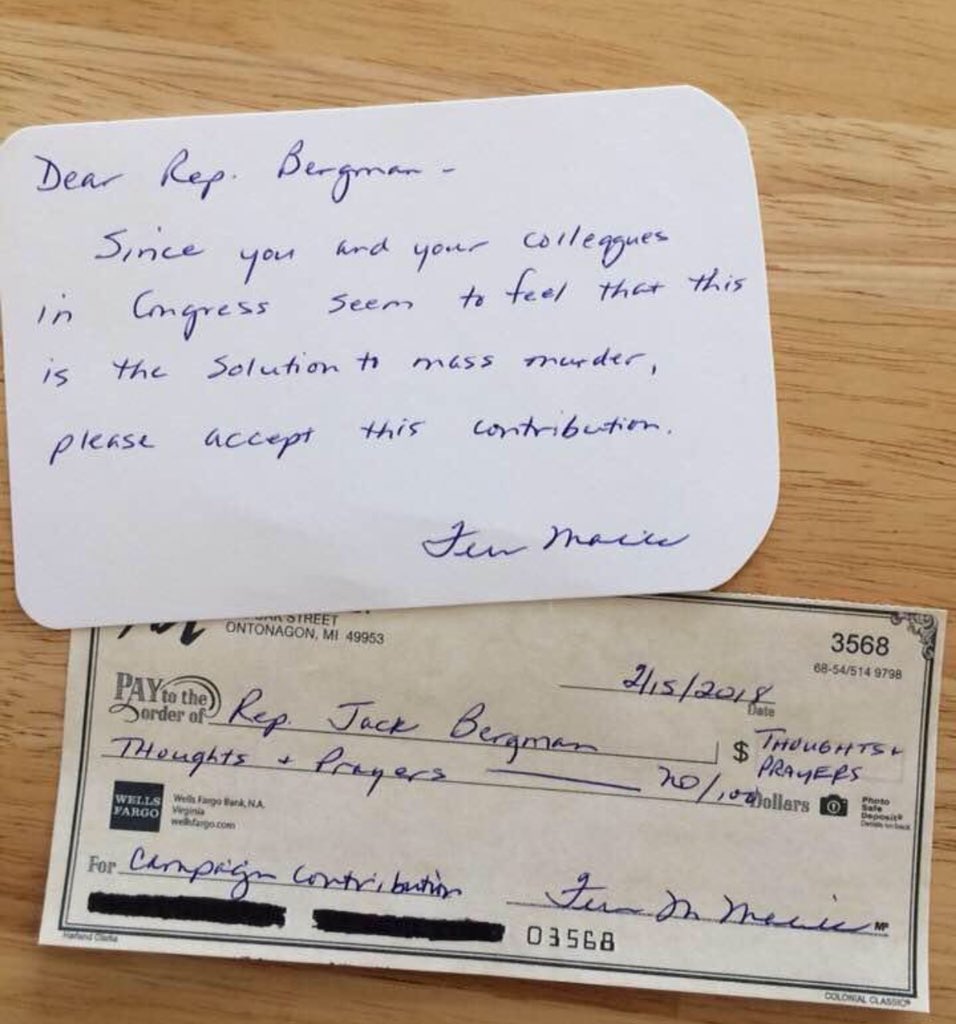 Dear Rep. Bergman -
Since you and your colleagues
in Congress seem to feel that this
is the solution to mass murder,
please accept this contribution.
STREET
ONTONAGON, MI 49953
3568
68-54/514 9798
2/15/2018
Date
PAY to the order of Rep. Jack Bergman
$ THOUGHTS +
PRAYERS
Thoughts + Prayers no/100 Dollars
Photo
Safe
Deposit®
Details on back
WELLS
FARGO
Wells Fargo Bank, N.A.
Virginia
wellsfargo.com
For Campaign Contribution
MP
03568
Harland Clarke
COLONIAL CLASSIC®